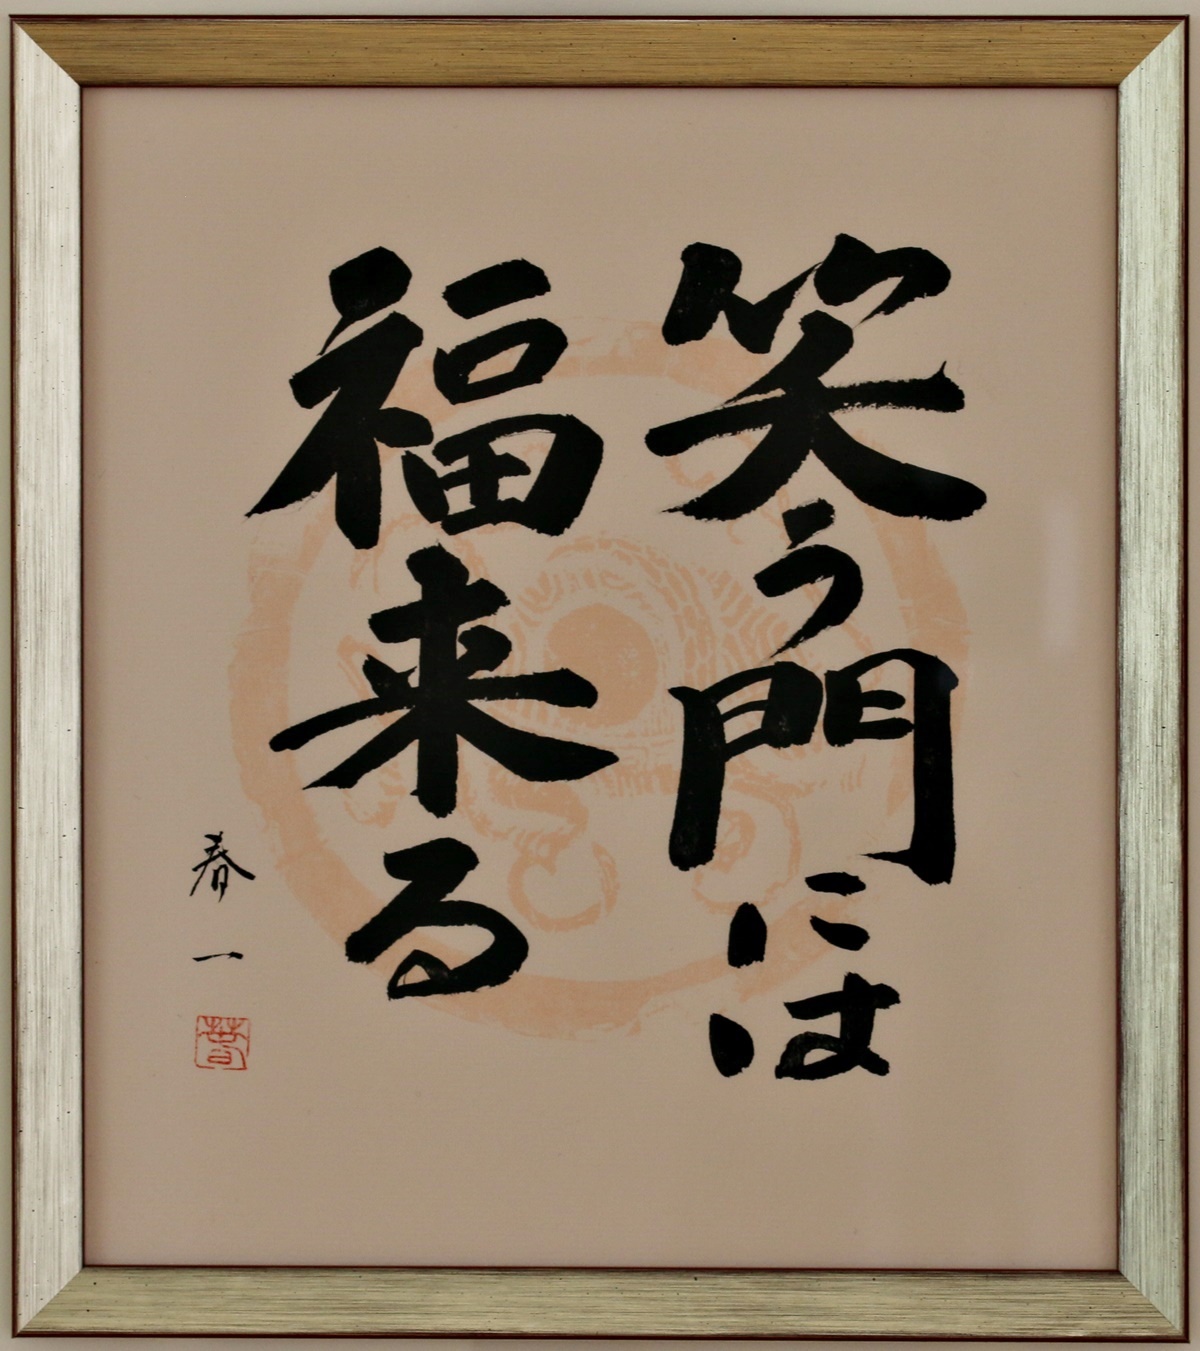 笑う門には
福来る
春一
春